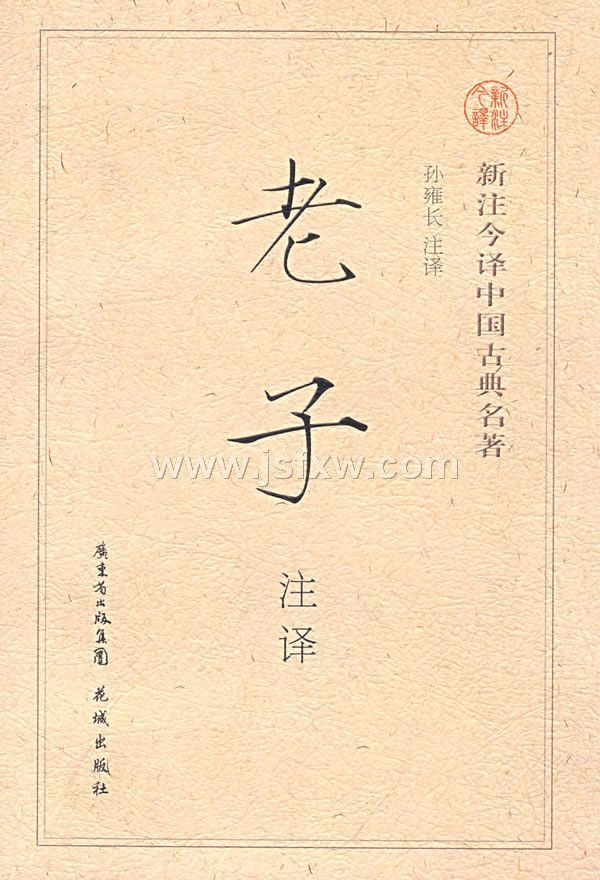 新注今译
新注今译中国古典名著
孙雍长 注译
老子
注译
廣東省出版集團 花城出版社
www.jsfxw.com